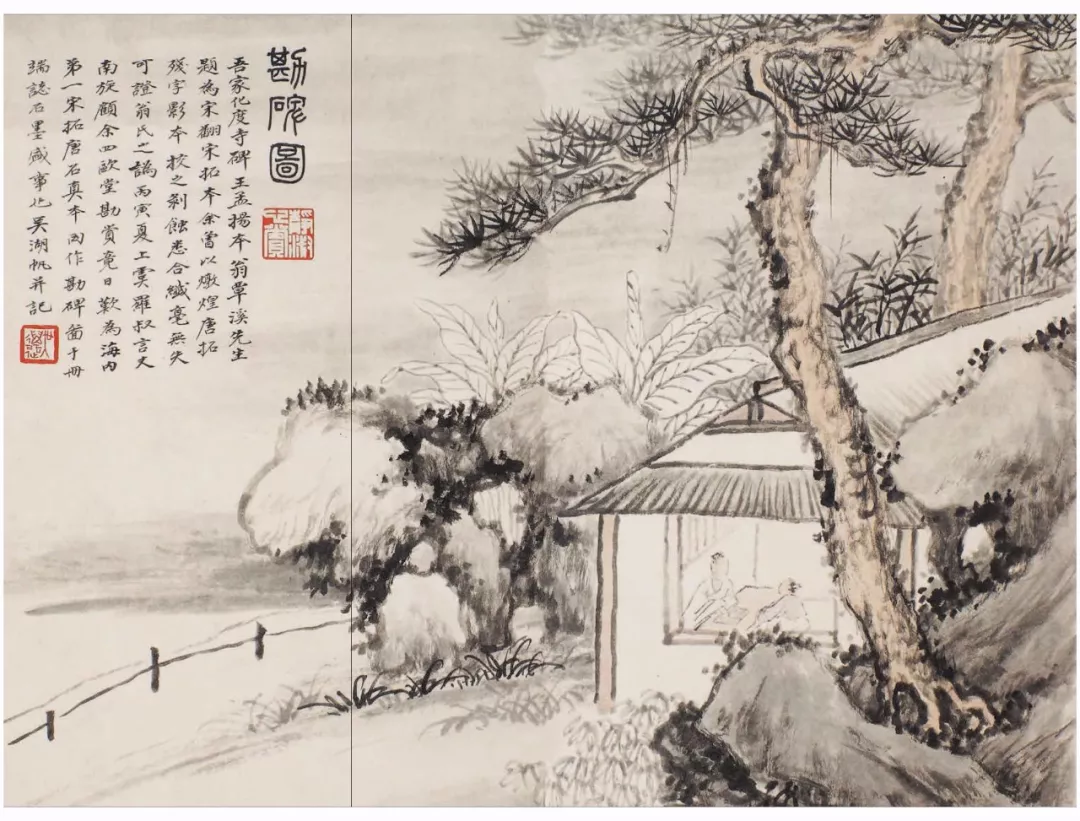 勘碑圖
吾家化度寺碑王孟揚本翁覃溪先生
題為宋翻宋拓本余嘗以燉煌唐拓
殘字影本挍之剝蝕悉合纖毫無失
可證翁氏之譌丙寅夏上虞羅叔言丈
南旋顧余四歐堂勘賞竟日歎為海內
第一宋拓唐石真本因作勘碑啚于冊
端誌石墨盛事也吳湖帆并記